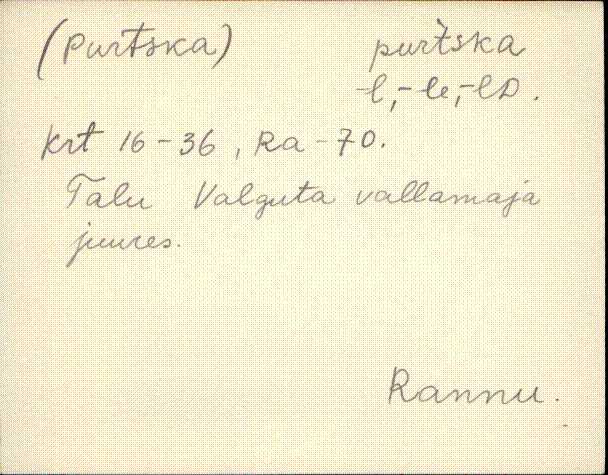 (Purtska) purťska
-l, -le, -lD.
Krt 16-36, Ra-70.
Talu Valguta vallamaja
juures.
Rannu.